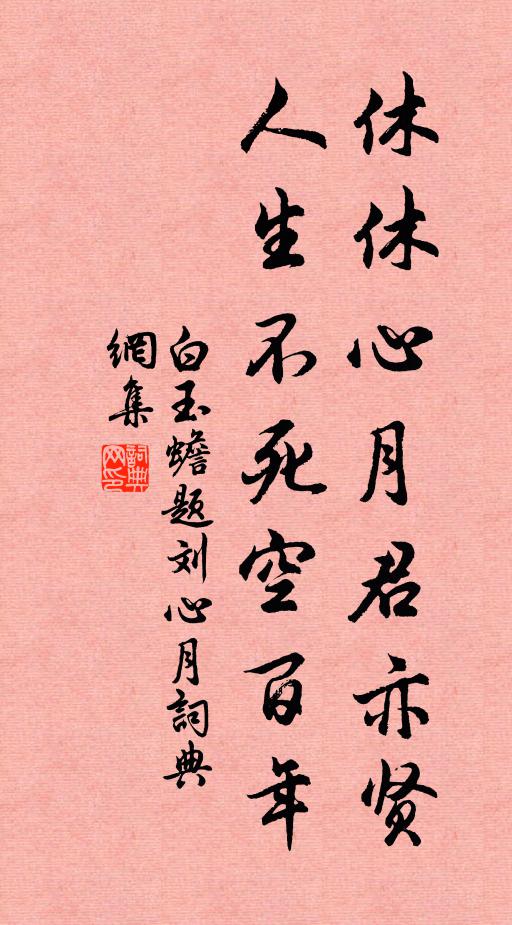 休休心月君亦贤
人生不死空百年
白玉蟾题刘心月詞典
網集
詞典網印